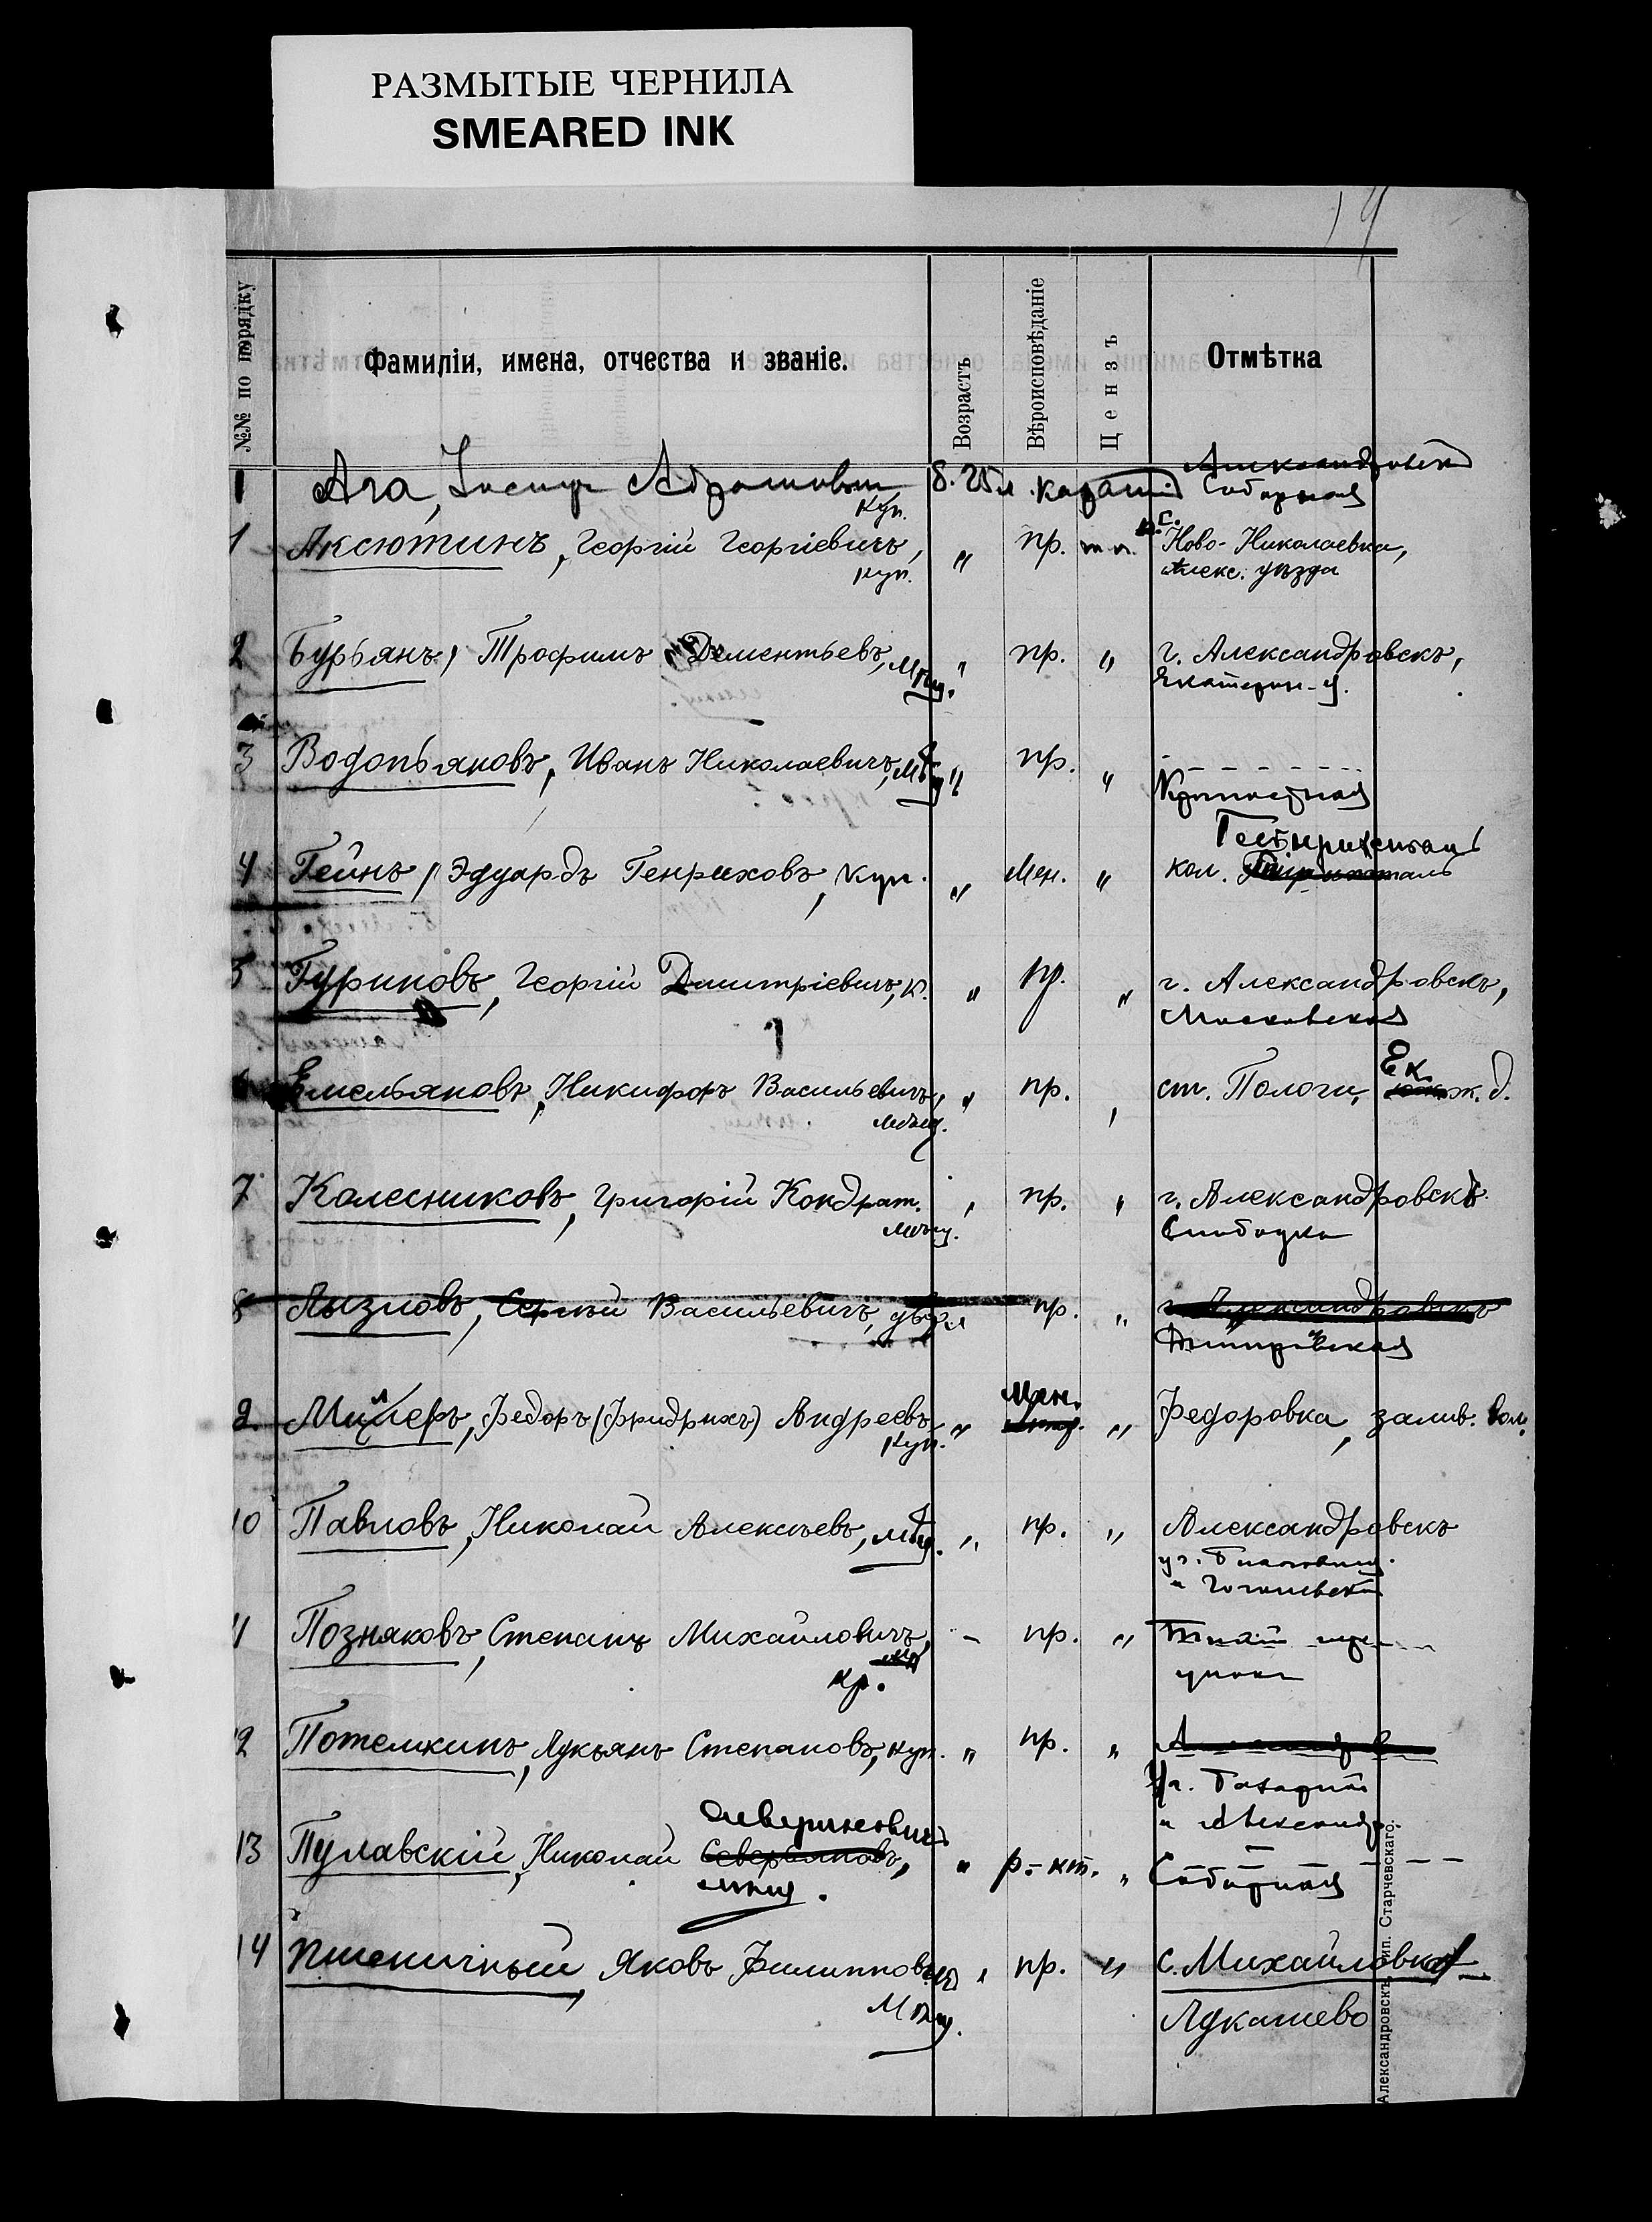 РАЗМЫТЫЕ ЧЕРНИЛА
SMEARED INK
19
№№ по порядку
Фамиліи, имена, отчества и званіе.
Возрастъ
Вѣроисповѣданіе
Цензъ
Отмѣтка
1 Ага, Іосифъ Абрамовичъ б. 25 л. караим
куп. Соборная
1 Аксютинъ, Георгій Георгіевичъ, „ пр. т.п. с. Ново-Николаевка,
куп. Алекс. уѣзда
2 Бурьянъ, Трофимъ Дементьевъ, мѣщ. „ пр. „ г. Александровскъ,
Екатерин-я.
3 Водопьяновъ, Иванъ Николаевичъ, мѣщ. „ пр. „
Крѣпостная
4 Гейнъ, Эдуардъ Генриховъ, куп. „ Мен. „ кол.
5 Гуриновъ, Георгій Дмитріевичъ, к. „ пр. „ г. Александровскъ,
Московская
6 Емельяновъ, Никифоръ Васильевичъ, „ пр. , ст. Пологи, Ек. ж. д.
мѣщ.
7 Колесниковъ, Григорій Кондрат. , пр. „ г. Александровскъ
мѣщ. Слободка
8 Лызловъ, Сергѣй Васильевичъ, пр. „ г. Александровскъ
Дмитровская
9 Миллеръ, Федоръ (Фридрихъ) Андреевъ „ Мен. „ Федоровка, залив. вол.
куп.
10 Павловъ, Николай Алексѣевъ, мѣщ. „ пр. „ Александровскъ
уг.
и Гоголевской
11 Позняковъ, Степанъ Михайловичъ, - пр. „
кр.
12 Потемкинъ, Лукьянъ Степановъ, куп. „ пр. „
Уг. Базарной
и Александр.
Севериновичъ
13 Пулавскій, Николай Северьяновъ, „ р.-кт. „ Соборная
мѣщ.
14 Пшеничный Яковъ Филипповъ „ пр. „ с. Михайловка
Мѣщ. Лукашево
Александровскъ, тип. Старчевскаго.